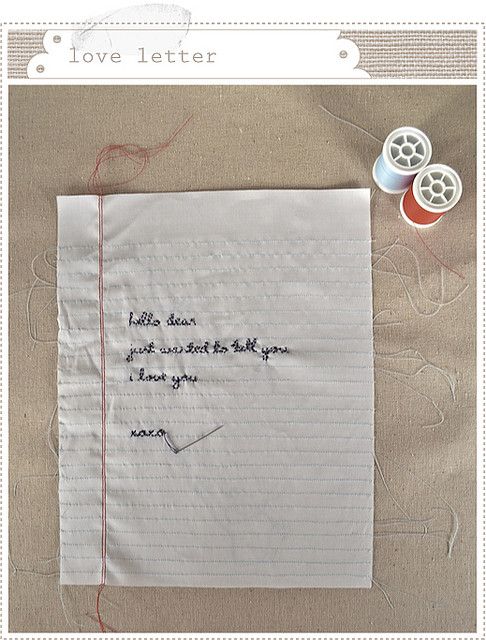 love letter
hello dear
just wanted to tell you
i love you
xoxo